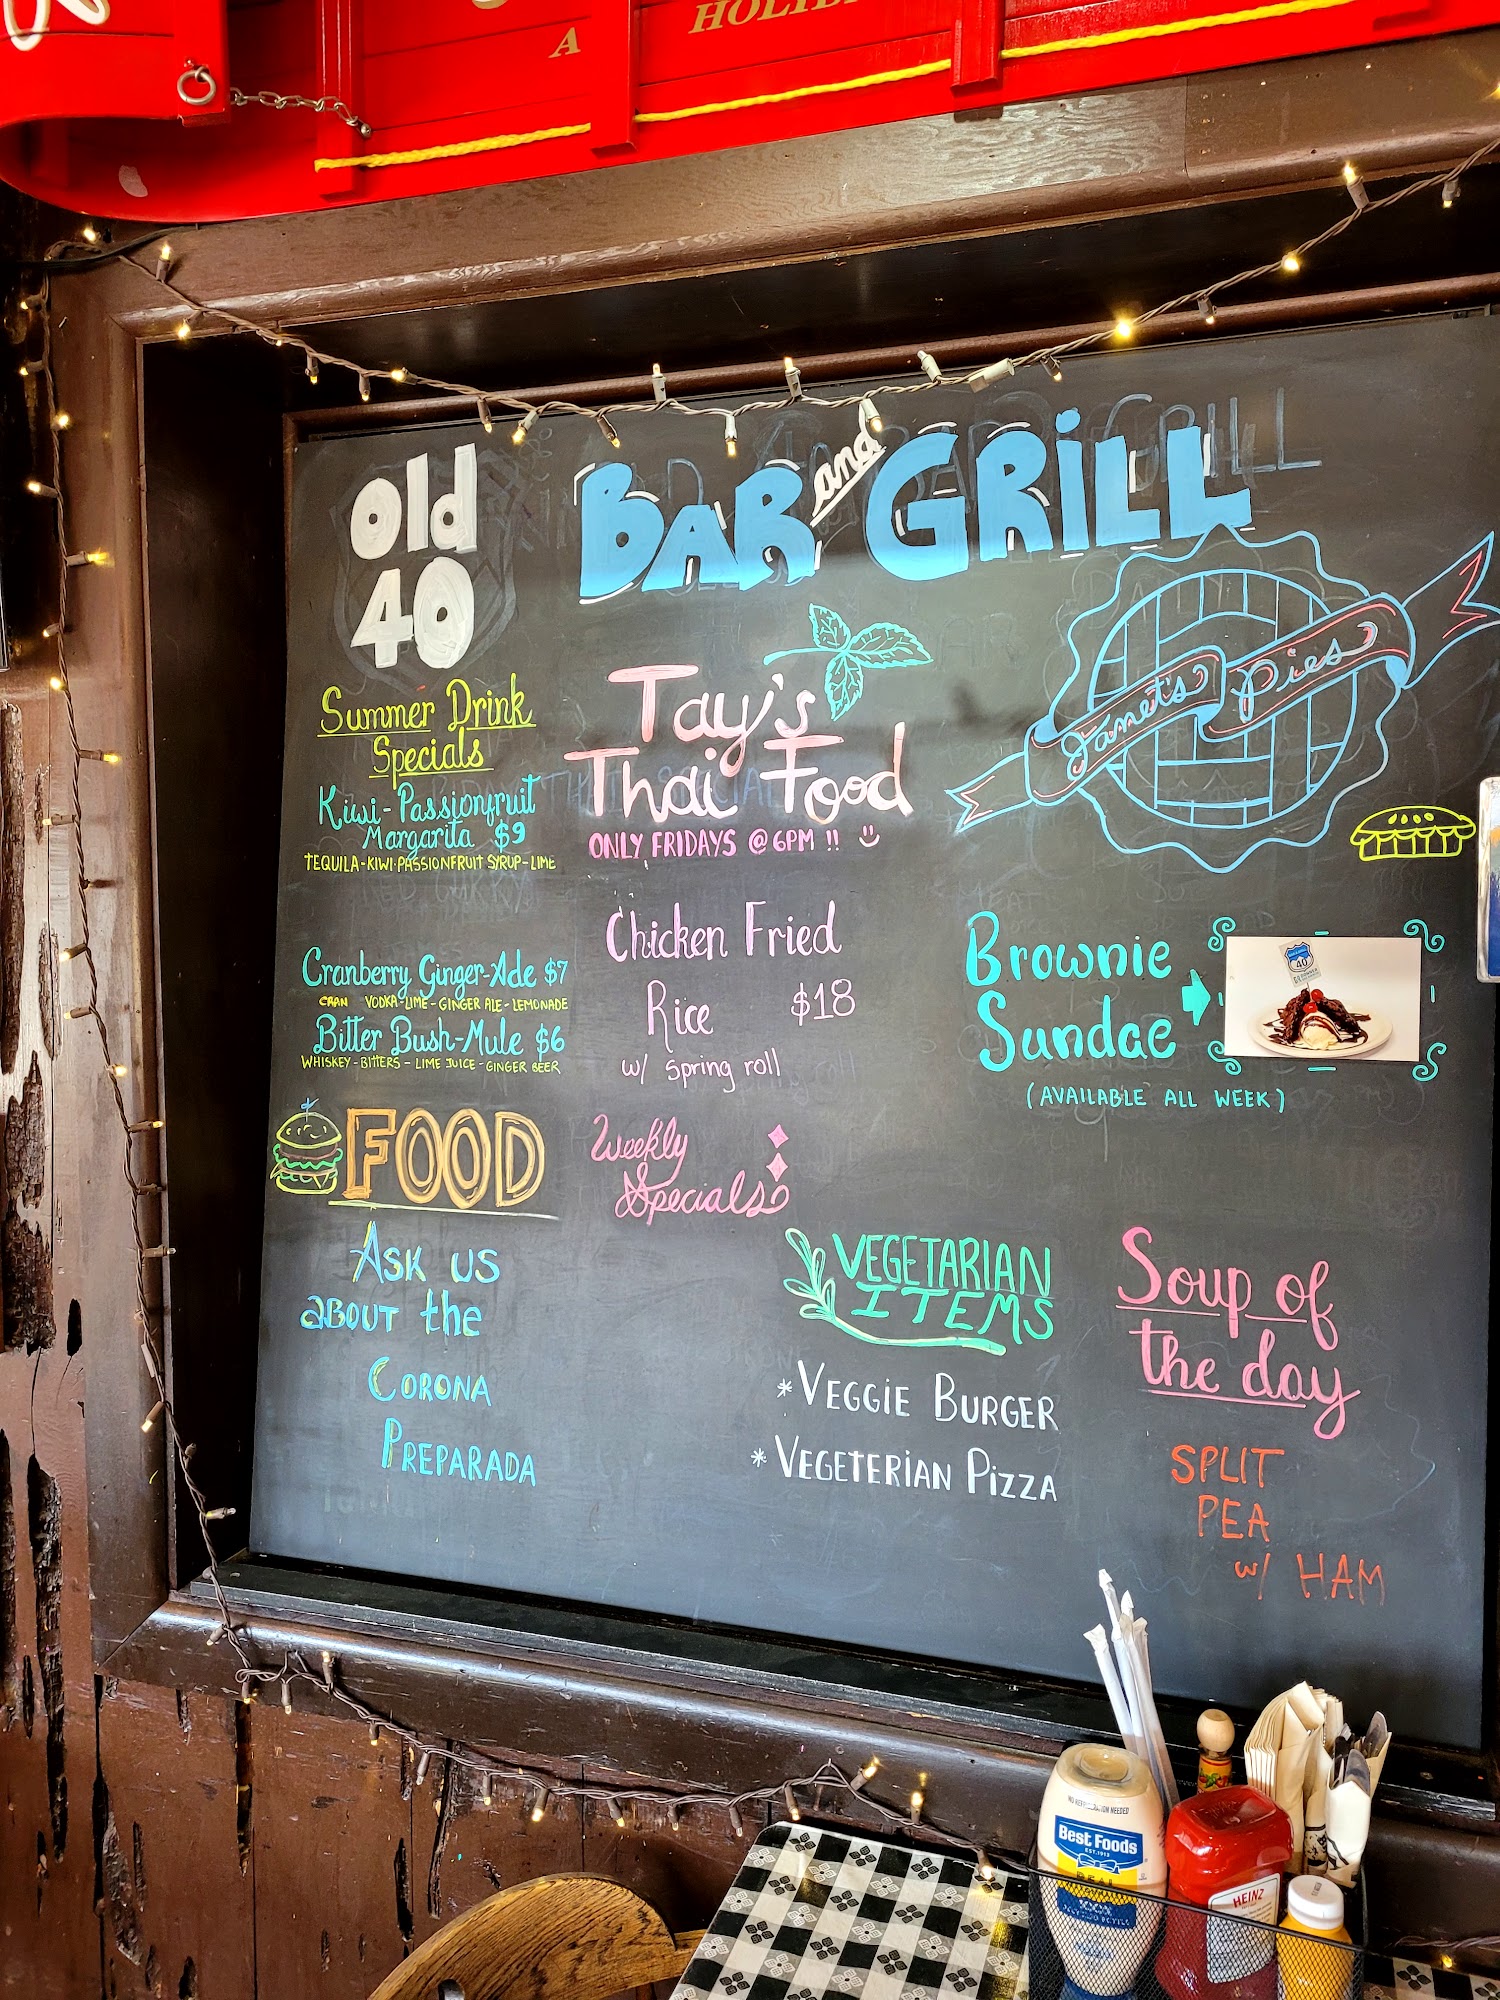 A
HOLID
old
40
BAR and GRiLL
Summer Drink
Specials
Kiwi-Passionfruit
Margarita $9
TEQUILA-KIWI-PASSIONFRUIT SYRUP-LIME
Cranberry Ginger-Ade $7
CRAN VODKA-LIME-GINGER ALE-LEMONADE
Bitter Bush-Mule $6
WHISKEY-BITTERS-LIME JUICE-GINGER BEER
FOOD
ASK US
aBOUT the
CORONA
PREPARADA
Tay's
Thai Food
ONLY FRIDAYS @ 6PM !!
Chicken Fried
Rice $18
w/ spring roll
Weekly
Specials
VEGETARIAN
ITEMS
*VEGGiE BURGER
*VEGETERiAN PiZZA
Janet's Pies
Brownie
Sundae
(AVAILABLE ALL WEEK)
40
Soup of
the day
SPLIT
PEA
w/ HAM
NO REFRIGERATION NEEDED
Best Foods
EST. 1913
REAL
HEINZ